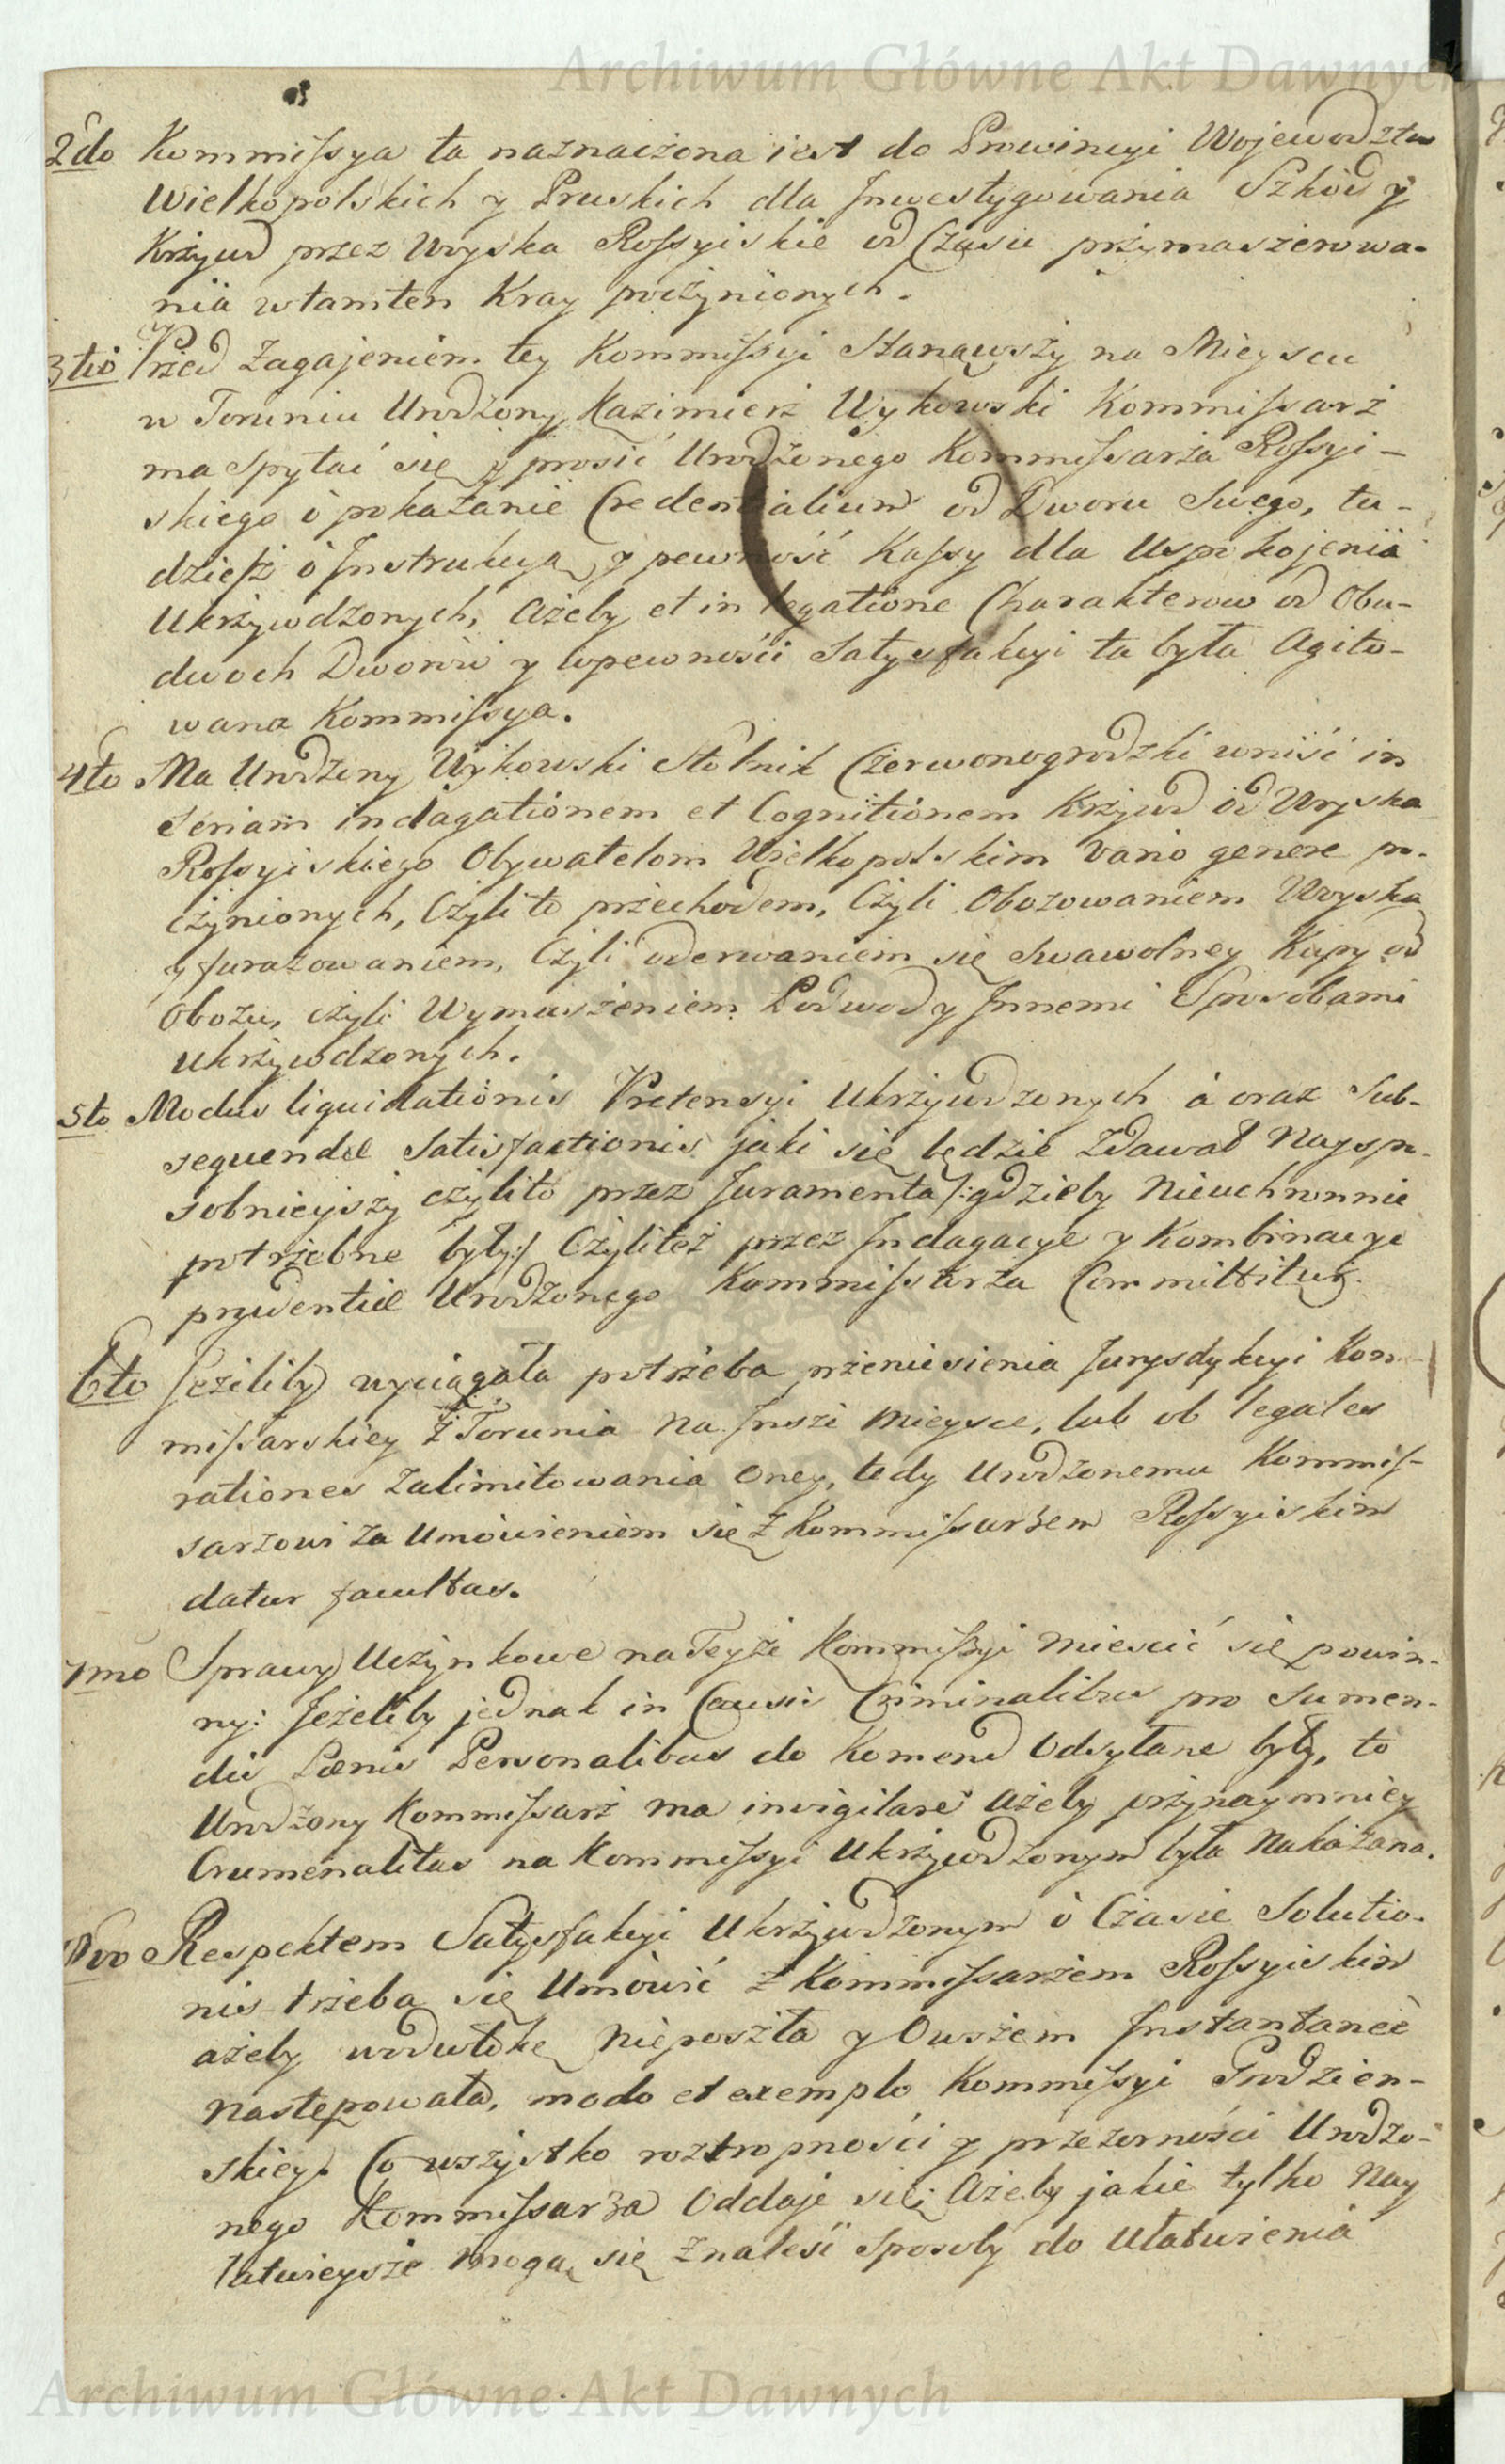 Archiwum Główne Akt Dawnych
2do Kommissya ta naznaczona iest do Prowincyi Wojewodztw
Wielkopolskich y Pruskich dla Inwestygowania Szkód y
Krzywd przez Woyska Rossyiskie od Czasu przymaszerowa-
nia w tamten Kray poczynionych.
3tio Przed Zagajeniem tey Kommissyi Stanąwszy na Mieyscu
w Toruniu Urodzony Kazimierz Wykowski Kommissarz
ma Spytać się y prosić Urodzonego Kommissarza Rossyi-
skiego o pokazanie Credentialium od Dworu Swego, tu-
dziesz o Instrukcyą y pewność Kassy dla Uspokojenia
Ukrzywdzonych, Ażeby et in legatione Charakterow od Obu-
dwoch Dworów y w pewności Satysfakcyi ta była Agito-
wana Kommissya.
4to Ma Urodzony Wykowski Stolnik Czerwonogrodzki wniść in
seriam indagationem et Cognitionem Krzywd od Woyska
Rossyiskiego Obywatelom Wielkopolskim vario genere po-
czynionych, Czyli to przechodem, Czyli Obozowaniem Woyska
y furażowaniem, Czyli oderwaniem się Swawolney Kupy od
Obozu, czyli Wymuszeniem Podwod y Innemi Sposobami
ukrzywdzonych.
5to Modus liquidationis Pretensyi Ukrzywdzonych a oraz Sub-
sequendæ Satisfactionis jaki się będzie Zdawał Nayspo-
sobnieyszy czylito przez Juramenta /:gdzieby Nieuchronnie
potrzebne były:/ Czyliteż przez Indagacye y Kombinacye
prudentiæ Urodzonego Kommissarza Committitur.
6to Jeżeliby wyciągała potrzeba przeniesienia Jurysdykcyi Kom-
missarskiey z Torunia na Insze Mieysce, lub ob legales
rationes Zalimitowania Oney, tedy Urodzonemu Kommis-
sarzowi za Umówieniem się z Kommissarzem Rossyiskim
datur facultas.
7mo Sprawy Uczynkowe na Teyże Kommissyi mieścić się powin-
ny: Jeżeliby jednak in Causis Criminalibus pro Sumen-
dis Pœnis Personalibus do Komend Odsyłane były, to
Urodzony Kommissarz ma invigilare ażeby przynaymniey
Crumenalitas na Kommissyi Ukrzywdzonym była Nakazana.
8vo Respektem Satysfakcyi Ukrzywdzonym o Czasie Solutio-
nis trzeba się Umówić z Kommissarzem Rossyiskim
ażeby w odwłokę nieposzła y Owszem Instantaneè
następowała, modo et exemplo Kommissyi Grodzien-
skiey. Co wszystko roztropności y przezorności Urodzo-
nego Kommissarza Oddaje się; Ażeby jakie tylko Nay
łatwieysze mogą się Znaleść Sposoby do Ułatwienia
Archiwum Główne Akt Dawnych